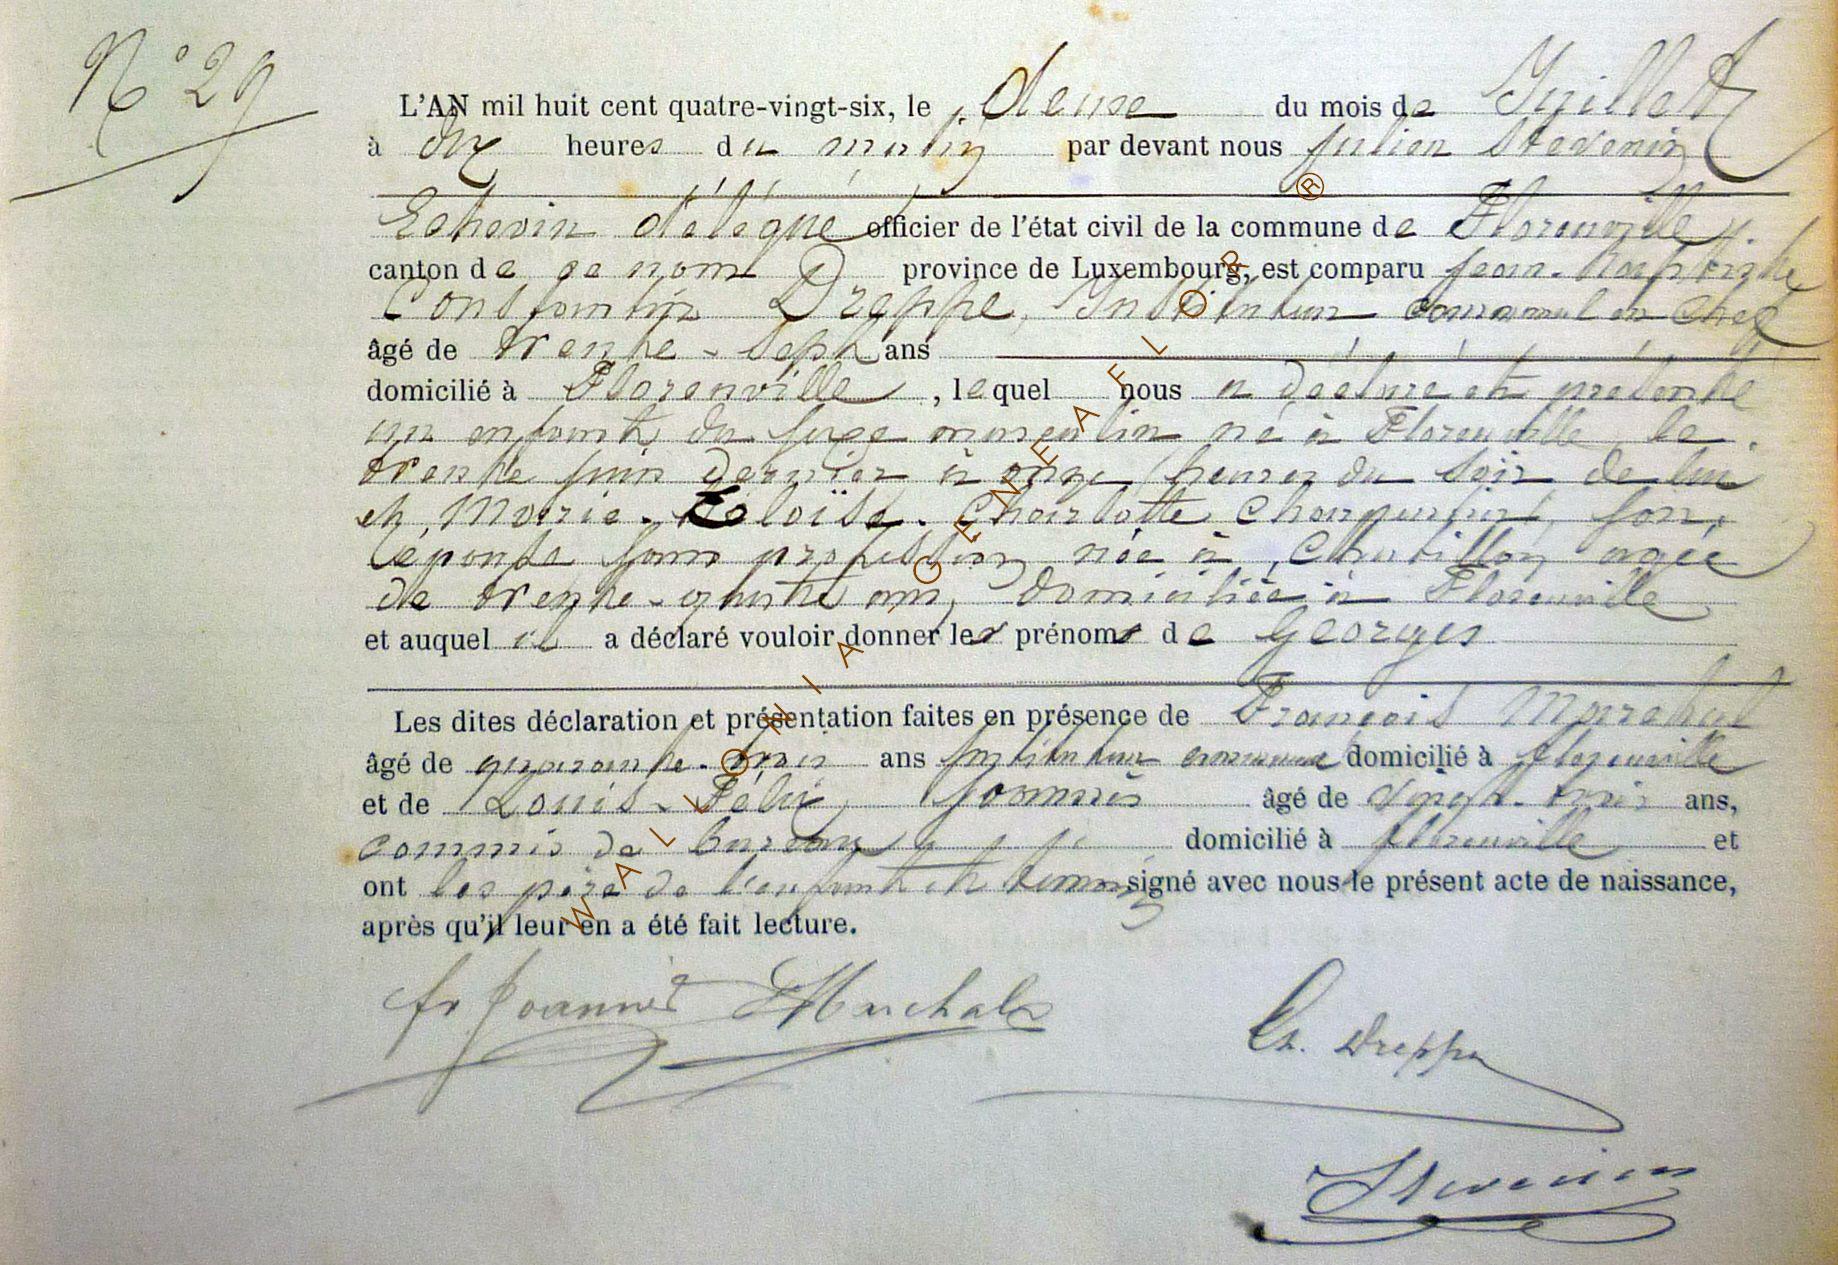 N° 29
L'AN mil huit cent quatre-vingt-six, le deuxe du mois de Juillet
à dix heures du matin par devant nous Julien Stevenin
Echevin délégué officier de l'état civil de la commune de Florenville
canton de ce nom province de Luxembourg, est comparu Jean-Baptiste
Constantin Dreppe, Instituteur communal en chef
âgé de trente-sept ans
domicilié à Florenville, lequel nous a déclaré et présenté
un enfant du sexe masculin né à Florenville le
trente juin dernier à onze heures du soir de lui
et Marie-Héloïse-Charlotte Charpentier, son
épouse sans profession née à Chatillon agée
de trente-quatre ans, domiciliée à Florenville
et auquel il a déclaré vouloir donner les prénoms de Georges
Les dites déclaration et présentation faites en présence de François Marchal
âgé de quarante-trois ans instituteur communal domicilié à Florenville
et de Louis-Félix Joannès âgé de vingt-trois ans,
commis de bureau domicilié à Florenville et
ont les père de l'enfant et témoins signé avec nous le présent acte de naissance,
après qu'il leur en a été fait lecture.
Joannès Marchal
Dreppe
Stevenin
WALLONIA-GENEAFLOR®